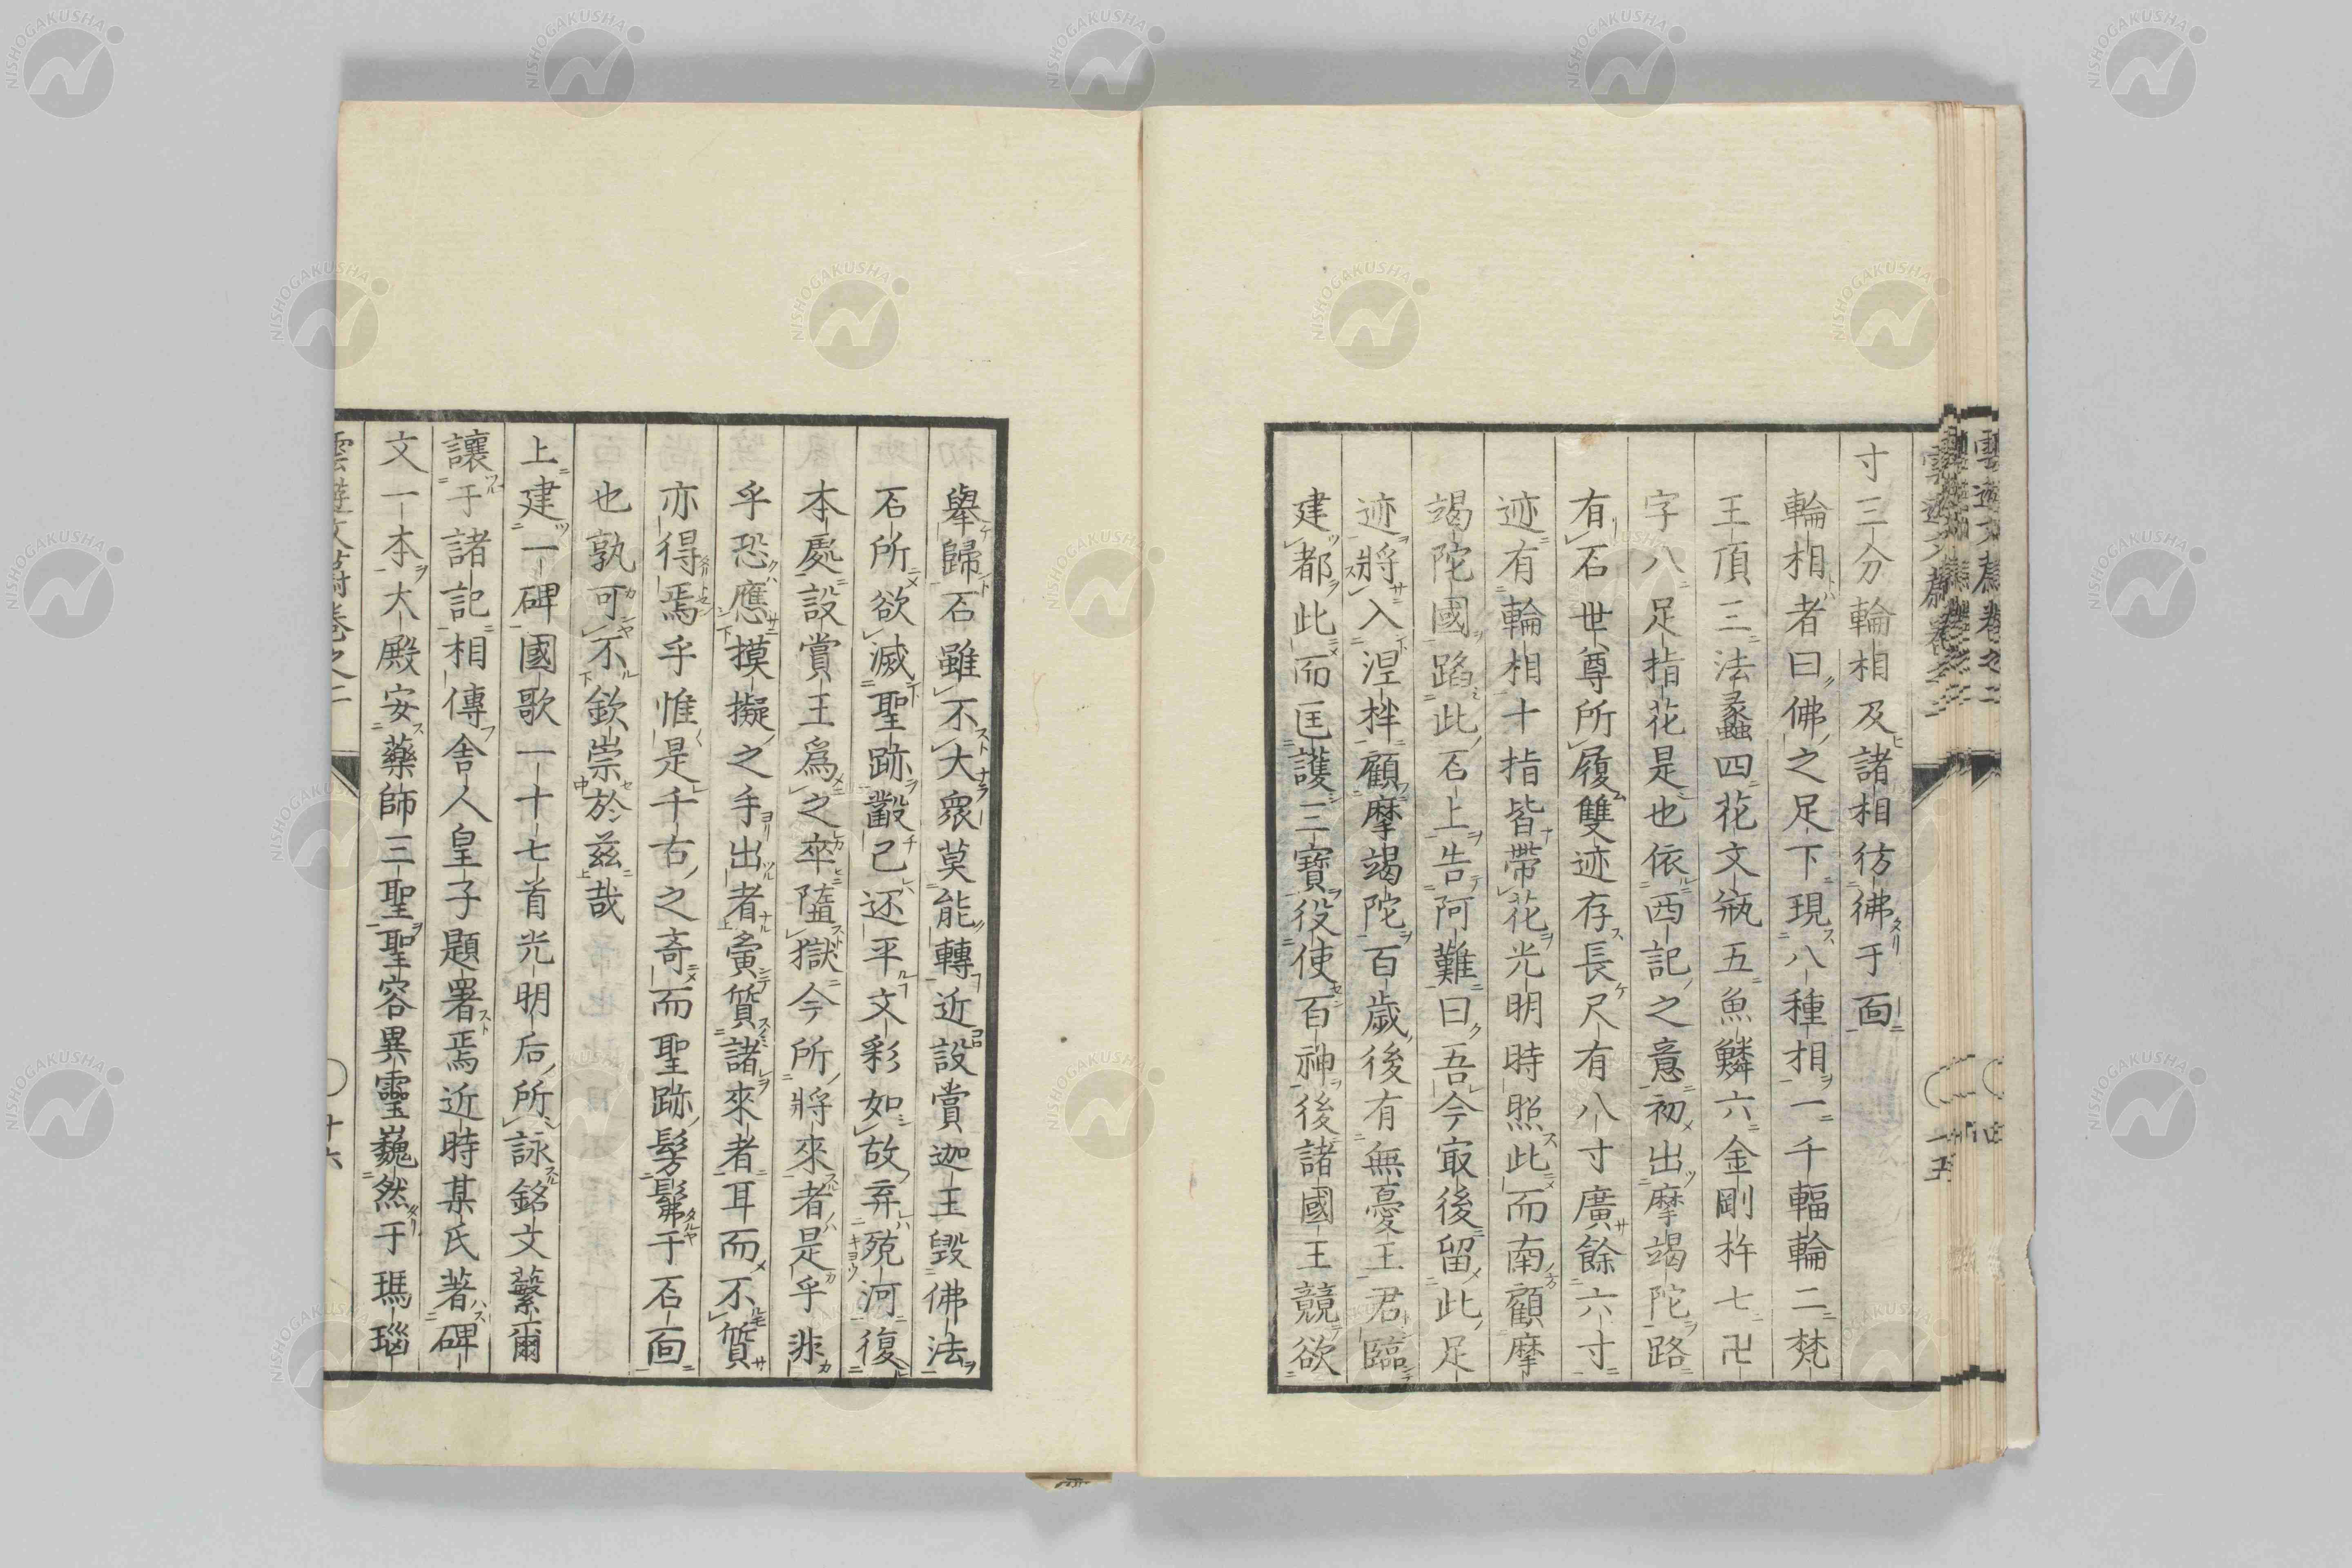 寸三分輪相及諸相彷彿于面
輪相者曰佛之足下現八種相一千輻輪二梵
王頂三法蠡四花文瓶五魚鱗六金剛杵七卍
字八足指花是也依西記之意初出摩竭陀路
有石世尊所履雙迹存長尺有八寸廣餘六寸
迹有輪相十指皆帶花光明時照此而南顧摩
竭陀國蹈此石上告阿難曰吾今㝡後留此足
迹將入涅槃顧摩竭陀百歲後有無憂王君臨
建都此而匡護三寶役使百神後諸國王競欲
舉歸石雖不大衆莫能轉近設賞迦王毀佛法
石所欲滅聖跡鑿已还平文彩如故弃殑河復
本處設賞王爲之卒隨獄今所將來者是乎非
乎恐應摸擬之手出者寅質諸來者耳而不質
亦得焉乎惟是千右之奇而聖跡髣髴于石面
也孰可不欽崇於茲哉
上建一碑國歌一十七首光明后所詠銘文蘩爾
讓于諸記相傳舍人皇子題署焉近時某氏著碑
文一本大殿安藥師三聖聖容異靈巍然于瑪瑙
雲遊文蔚卷之二
十六
NISHOGAKUSHA